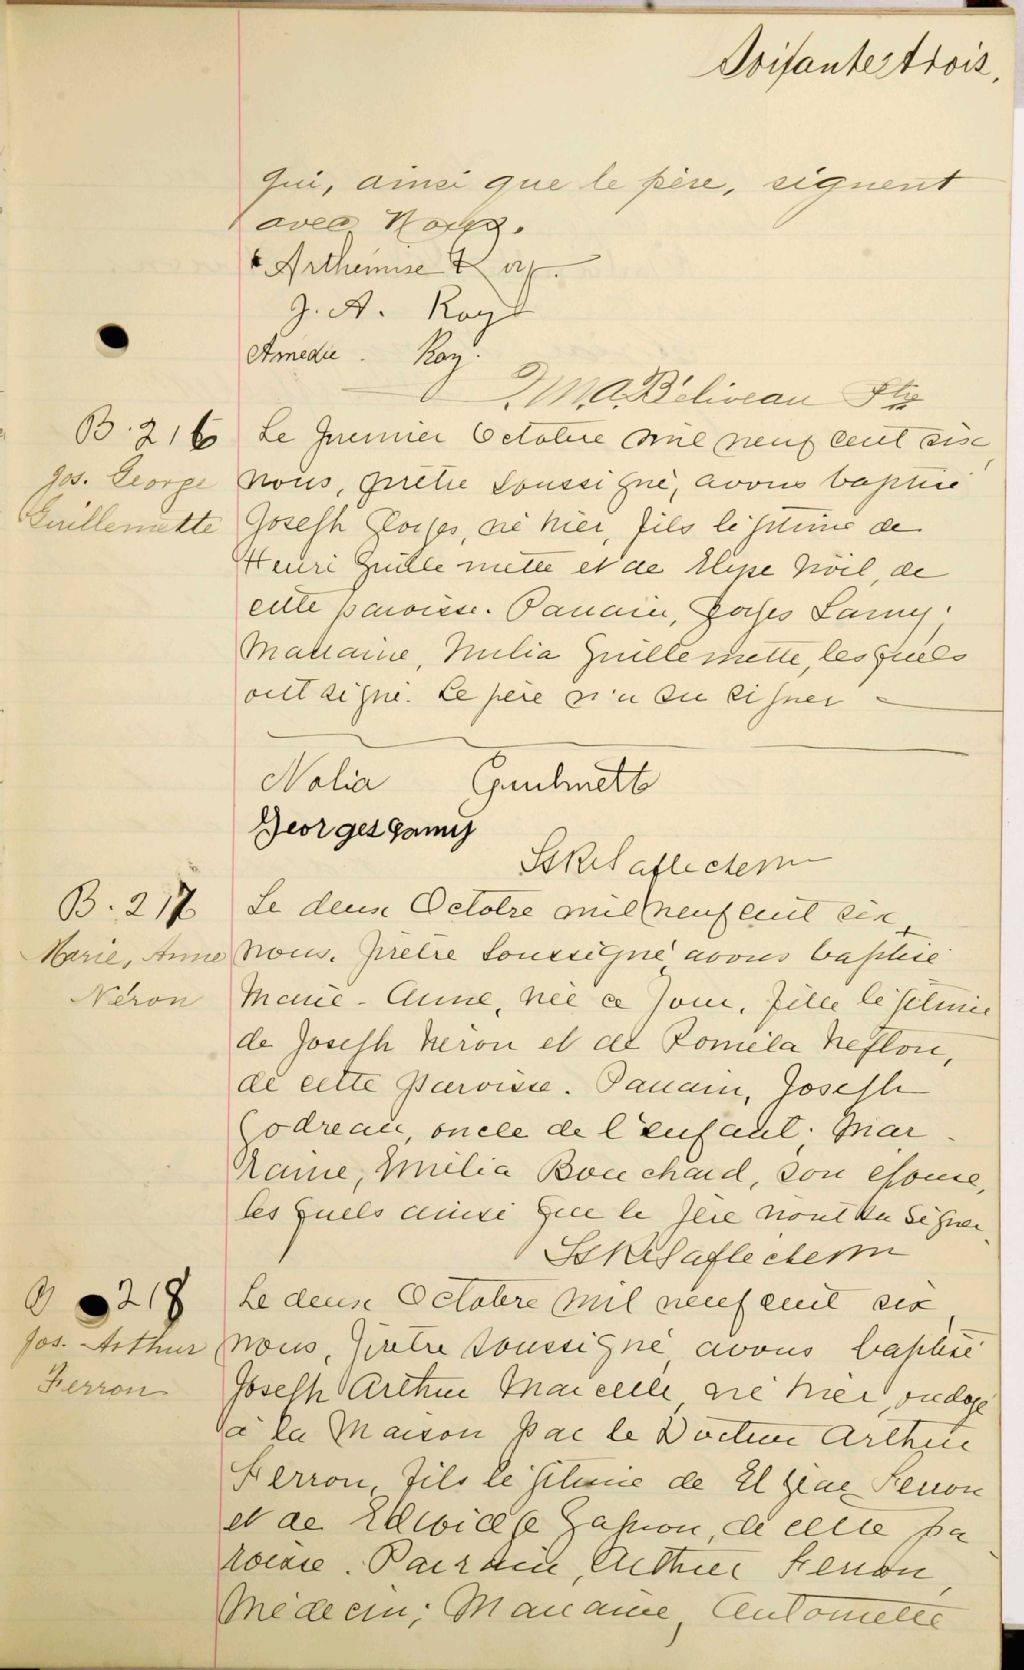 Soixante trois.
qui, ainsi que le père, signent
avec Nous.
Arthémise Roy.
J. A. Roy
Amédée Roy.
J. M. A. Béliveau Ptre
B. 216
Jos. George
Guillemette
Le premier Octobre mil neuf cent six,
nous, prêtre soussigné, avons baptisé
Joseph Georges, né hier, fils légitime de
Henri Guillemette et de Elyse Noël, de
cette paroisse. Parrain, Georges Lamy;
Marraine, Guillemette, lesquels
ont signé. Le père n'a su signer
Nolia Guilmette
Georges Lamy
B. 217
Marie, Anne
Néron
Le deux Octobre mil neuf cent six,
nous, prêtre soussigné avons baptisé
Marie-Anne, née ce jour, fille légitime
de Joseph Néron et de Roméla,
de cette paroisse. Parrain, Joseph
Godreau, oncle de l'enfant; Mar
raine, Emilia Bouchard, son épouse,
lesquels ainsi que le père n'ont su signer.
B 218
Jos. Arthur
Ferron
Le deux Octobre mil neuf cent six,
nous, prêtre soussigné, avons baptisé
Joseph Arthur Marcelle, né hier, ondoyé
à la Maison par le Docteur Arthur
Ferron, fils légitime de Elzéar Ferron
et de Edwidge Gagnon, de cette pa
roisse. Parrain, Arthur Ferron,
Médecin; Marraine, Antoinette